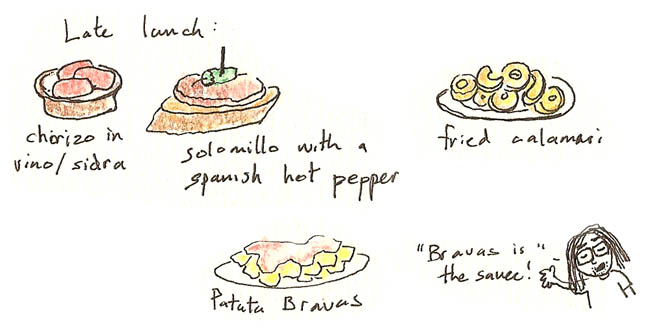 Late lunch:
chorizo in
vino/sidra
solomillo with a
spanish hot pepper
fried calamari
Patata Bravas
"Bravas is"
the sauce!